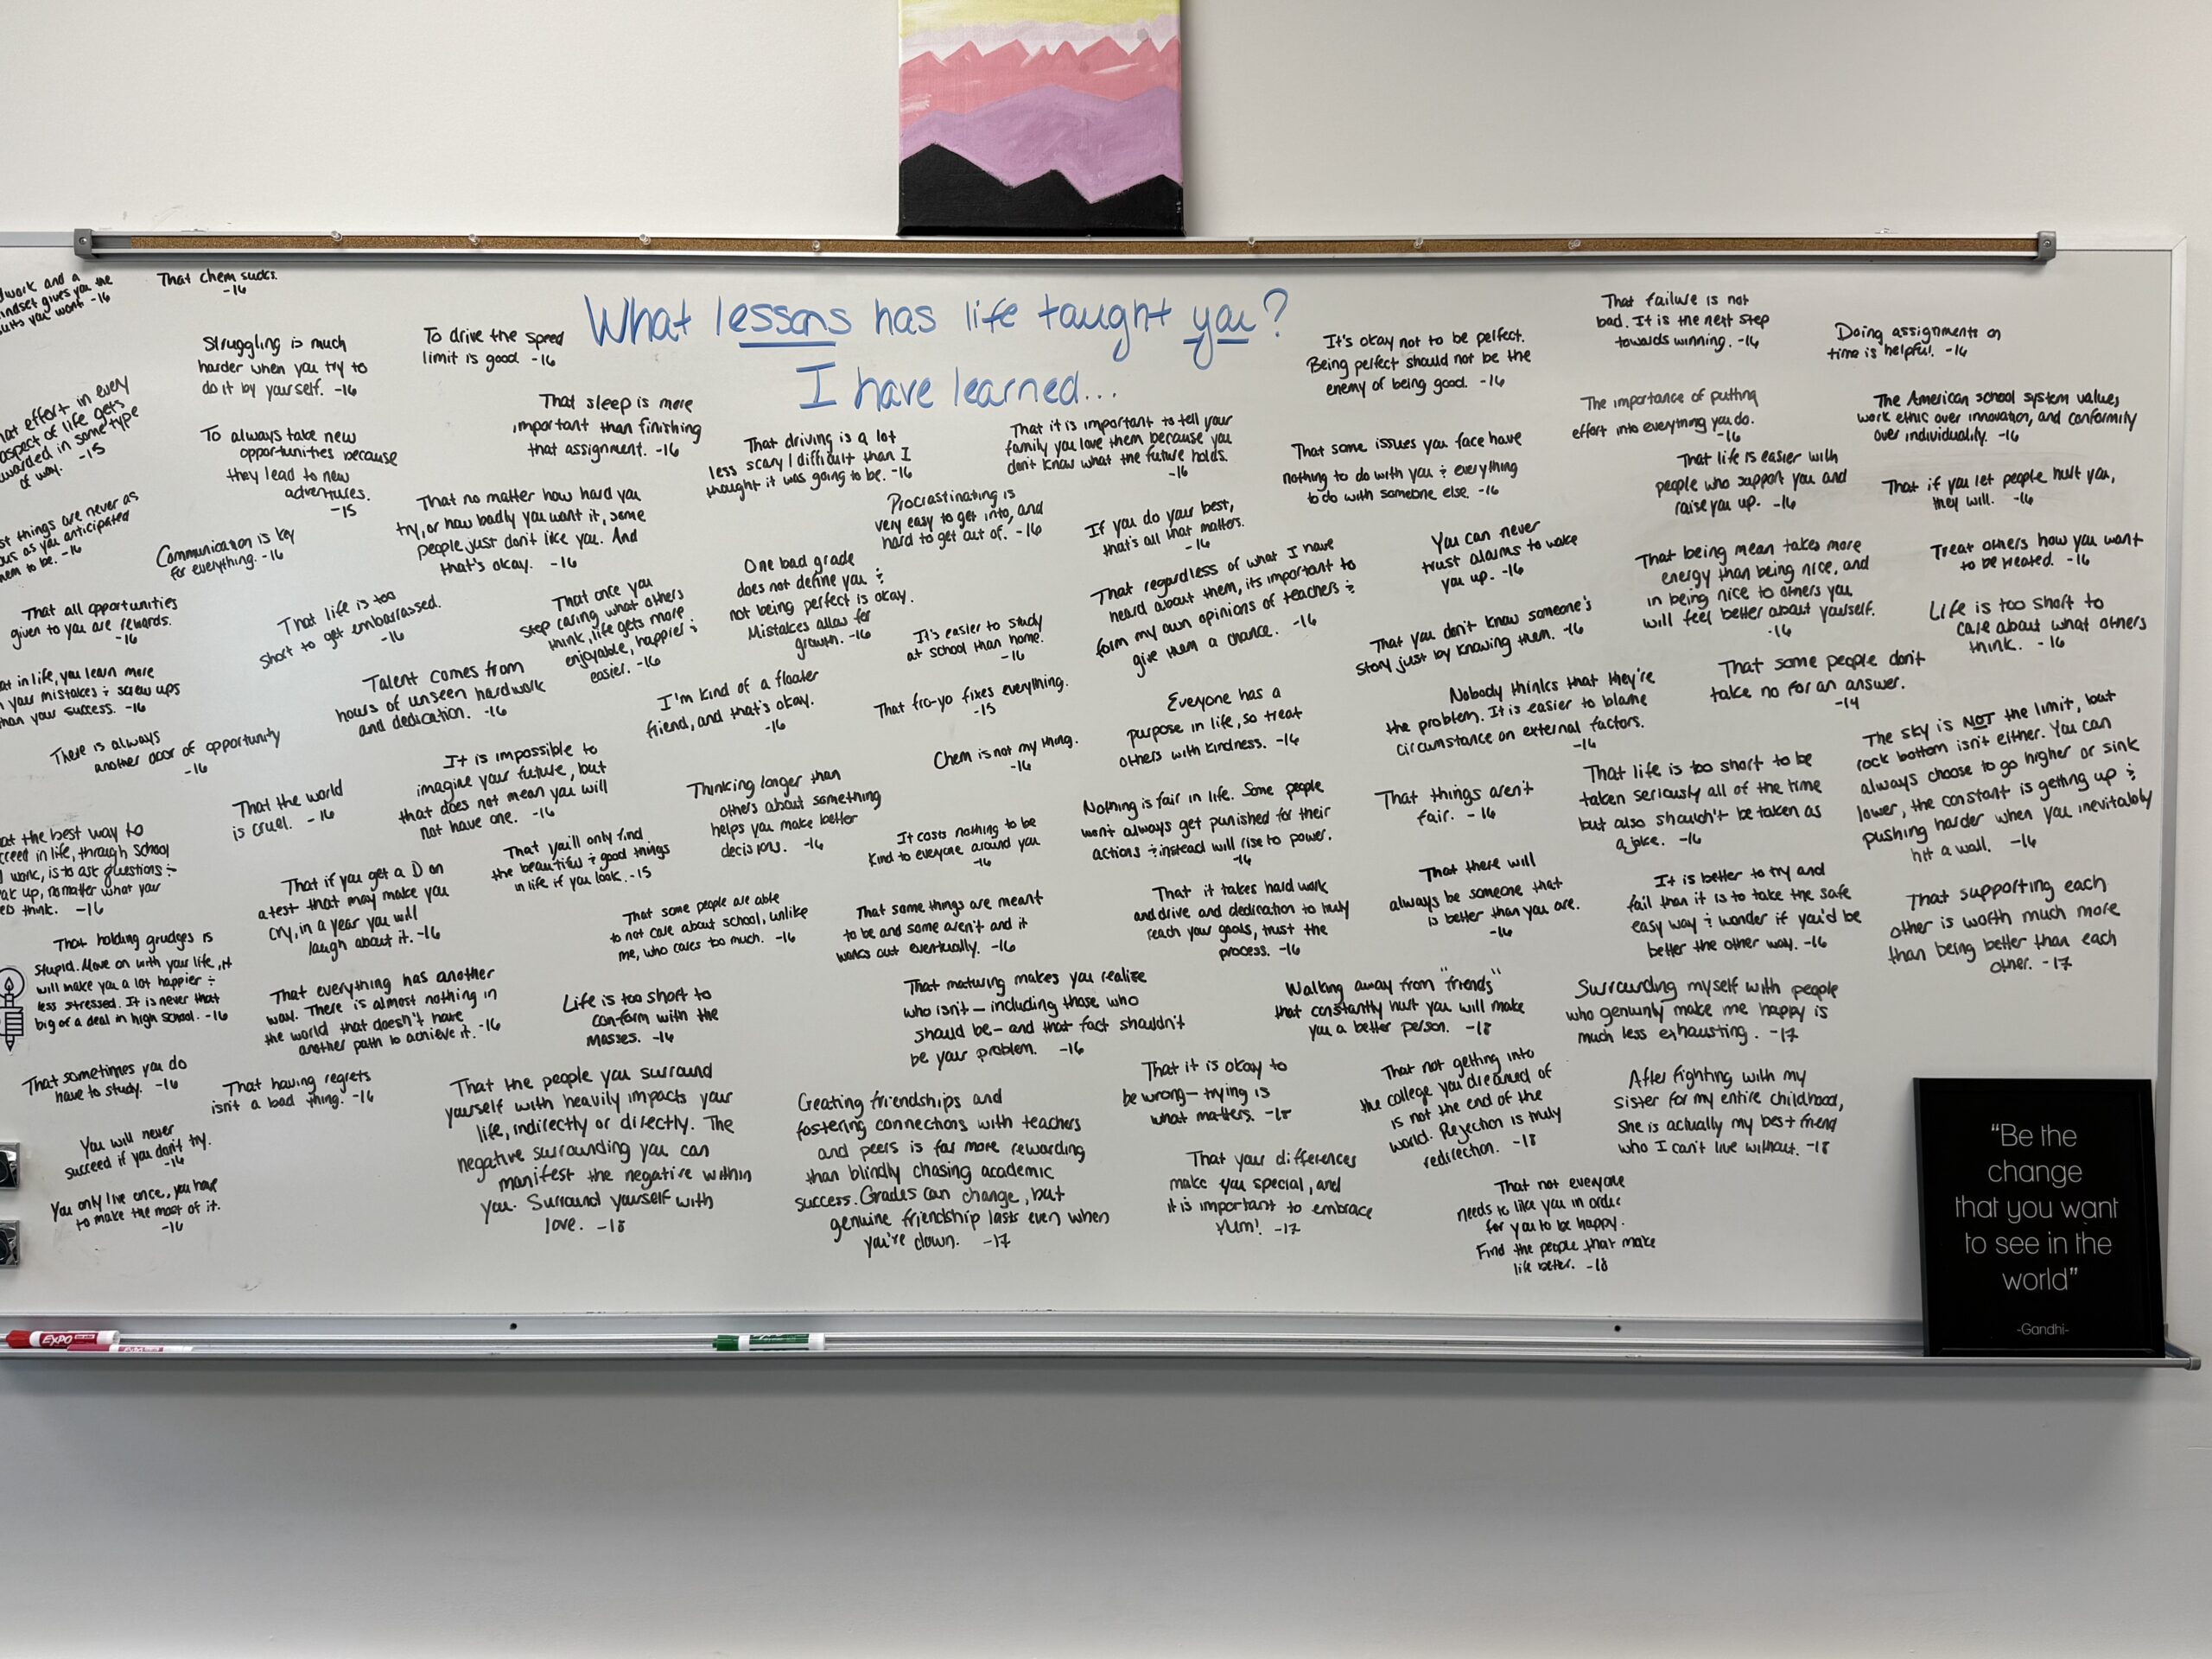 What lessons has life taught you?
I have learned...
work and a
mindset gives you the
you want -16
That chem sucks.
-16
Struggling is much
harder when you try to
do it by yourself. -16
To drive the speed
limit is good -16
effort in every
aspect of life gets
in some type
of way. -15
To always take new
opportunities because
they lead to new
adventures.
-15
That sleep is more
important than finishing
that assignment. -16
That driving is a lot
less scary / difficult than I
thought it was going to be. -16
That it is important to tell your
family you love them because you
don't know what the future holds.
-16
It's okay not to be perfect.
Being perfect should not be the
enemy of being good. -16
That failure is not
bad. It is the next step
towards winning. -16
Doing assignments on
time is helpful. -16
The importance of putting
effort into everything you do.
-16
The American school system values
work ethic over innovation, and conformity
over individuality. -16
That some issues you face have
nothing to do with you & everything
to do with someone else -16
That life is easier with
people who support you and
raise you up. -16
That if you let people hurt you,
they will. -16
things are never as
as you anticipated
to be. -16
Communication is key
for everything. -16
That no matter how hard you
try, or how badly you want it, some
people just don't like you. And
that's okay. -16
Procrastinating is
very easy to get into, and
hard to get out of. -16
If you do your best,
that's all that matters.
-16
You can never
trust alarms to wake
you up. -16
That being mean takes more
energy than being nice, and
in being nice to others you
will feel better about yourself.
-16
Treat others how you want
to be treated. -16
That all opportunities
given to you are rewards.
-16
That life is too
short to get embarrassed.
-16
That once you
stop caring what others
think, life gets more
enjoyable, happier &
easier. -16
One bad grade
does not define you &
not being perfect is okay.
Mistakes allow for
growth. -16
It's easier to study
at school than home.
-16
That regardless of what I have
heard about them, its important to
form my own opinions of teachers &
give them a chance. -16
That you don't know someone's
story just by knowing them. -16
Life is too short to
care about what others
think. -16
in life, you learn more
your mistakes & screw ups
than your success. -16
Talent comes from
hours of unseen hardwork
and dedication. -16
I'm kind of a floater
friend, and that's okay.
-16
That fro-yo fixes everything.
-15
Everyone has a
purpose in life, so treat
others with kindness. -16
Nobody thinks that they're
the problem. It is easier to blame
circumstance on external factors.
-16
That some people don't
take no for an answer.
-14
There is always
another door of opportunity
-16
It is impossible to
imagine your future, but
that does not mean you will
not have one. -16
Chem is not my thing.
-16
The sky is NOT the limit, but
rock bottom isn't either. You can
always choose to go higher or sink
lower, the constant is getting up &
pushing harder when you inevitably
hit a wall. -16
That the world
is cruel. -16
Thinking longer than
others about something
helps you make better
decisions. -16
It costs nothing to be
kind to everyone around you
-16
Nothing is fair in life. Some people
won't always get punished for their
actions & instead will rise to power.
-16
That things aren't
fair. -16
That life is too short to be
taken seriously all of the time
but also shouldn't be taken as
a joke. -16
the best way to
in life, through school
work, is to ask questions &
up, no matter what your
think. -16
That if you get a D on
a test that may make you
cry, in a year you will
laugh about it. -16
That you'll only find
the beautiful & good things
in life if you look. -15
That some people are able
to not care about school, unlike
me, who cares too much. -16
That some things are meant
to be and some aren't and it
works out eventually. -16
That it takes hard work
and drive and dedication to truly
reach your goals, trust the
process. -16
That there will
always be someone that
is better than you are.
-16
It is better to try and
fail than it is to take the safe
easy way & wonder if you'd be
better the other way. -16
That supporting each
other is worth much more
than being better than each
other. -17
That holding grudges is
stupid. Move on with your life, it
will make you a lot happier &
less stressed. It is never that
big of a deal in high school. -16
That everything has another
way. There is almost nothing in
the world that doesn't have
another path to achieve it. -16
Life is too short to
conform with the
masses. -16
That maturing makes you realize
who isn't - including those who
should be - and that fact shouldn't
be your problem. -16
Walking away from "friends"
that constantly hurt you will make
you a better person. -18
Surrounding myself with people
who genuinly make me happy is
much less exhausting. -17
That sometimes you do
have to study. -16
That having regrets
isn't a bad thing. -16
That the people you surround
yourself with heavily impacts your
life, indirectly or directly. The
negative surrounding you can
manifest the negative within
you. Surround yourself with
love. -18
Creating friendships and
fostering connections with teachers
and peers is far more rewarding
than blindly chasing academic
success. Grades can change, but
genuine friendship lasts even when
you're down. -17
That it is okay to
be wrong - trying is
what matters. -18
That not getting into
the college you dreamed of
is not the end of the
world. Rejection is truly
redirection. -18
After fighting with my
sister for my entire childhood,
she is actually my best friend
who I can't live without. -18
You will never
succeed if you don't try.
-16
You only live once, you have
to make the most of it.
-16
That your differences
make you special, and
it is important to embrace
them! -17
That not everyone
needs to like you in order
for you to be happy.
Find the people that make
life better. -18
"Be the
change
that you want
to see in the
world"
-Gandhi-
EXPO